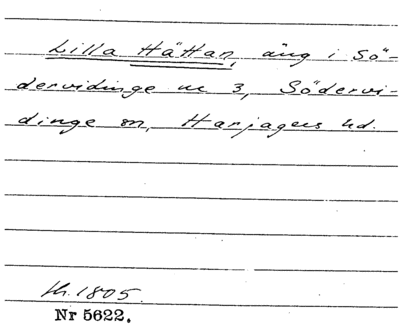 Lilla Hättan, äng i Sö-
dervidinge nr 3, Södervi-
dinge sn, Harjagers hd.
1805.
Nr 5622.